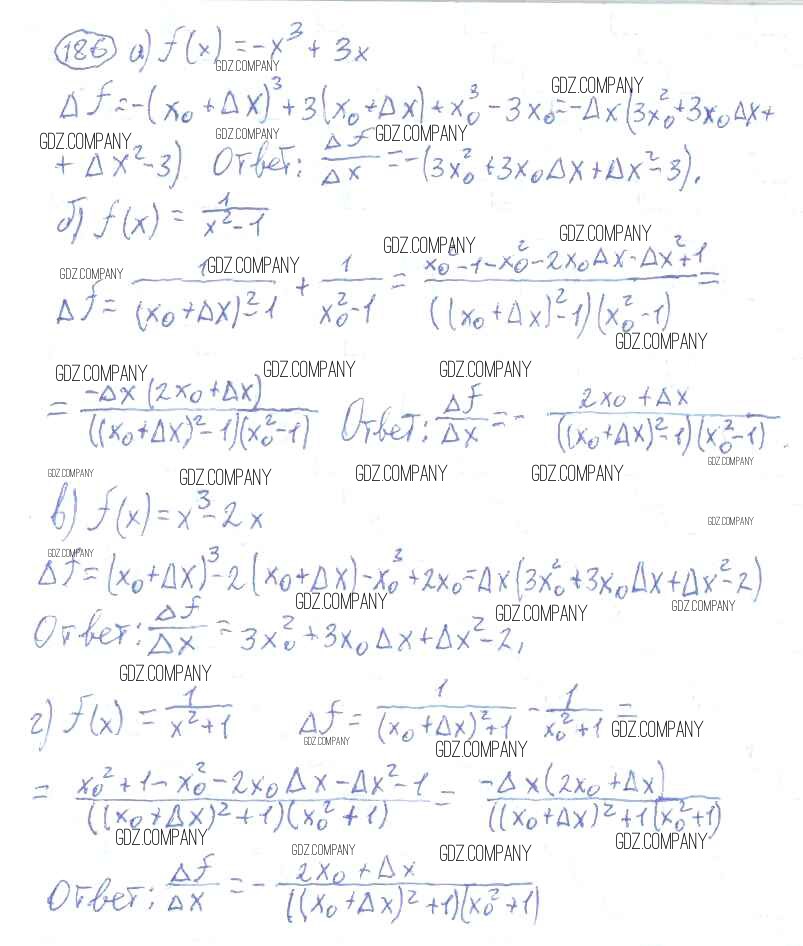 186 а) f(x) = -x³ + 3x
GDZ.COMPANY
GDZ.COMPANY
Δf = -(x₀ + Δx)³ + 3(x₀ + Δx) + x₀³ - 3x₀ = -Δx(3x₀² + 3x₀Δx +
GDZ.COMPANY GDZ.COMPANY GDZ.COMPANY
+ Δx² - 3) Ответ: Δf/Δx = -(3x₀² + 3x₀Δx + Δx² - 3).
б) f(x) = 1/(x² - 1)
GDZ.COMPANY GDZ.COMPANY
GDZ.COMPANY GDZ.COMPANY
Δf = 1/((x₀ + Δx)² - 1) + 1/(x₀² - 1) = (x₀² - 1 - x₀² - 2x₀Δx - Δx² + 1)/(((x₀ + Δx)² - 1)(x₀² - 1)) =
GDZ.COMPANY
GDZ.COMPANY GDZ.COMPANY GDZ.COMPANY
= (-Δx(2x₀ + Δx))/(((x₀ + Δx)² - 1)(x₀² - 1)) Ответ: Δf/Δx = - (2x₀ + Δx)/(((x₀ + Δx)² - 1)(x₀² - 1)).
GDZ.COMPANY
GDZ.COMPANY GDZ.COMPANY GDZ.COMPANY GDZ.COMPANY
в) f(x) = x³ - 2x
GDZ.COMPANY
GDZ.COMPANY
Δf = (x₀ + Δx)³ - 2(x₀ + Δx) - x₀³ + 2x₀ = Δx(3x₀² + 3x₀Δx + Δx² - 2)
GDZ.COMPANY GDZ.COMPANY GDZ.COMPANY
Ответ: Δf/Δx = 3x₀² + 3x₀Δx + Δx² - 2,
GDZ.COMPANY
г) f(x) = 1/(x² + 1) Δf = 1/((x₀ + Δx)² + 1) - 1/(x₀² + 1) =
GDZ.COMPANY GDZ.COMPANY GDZ.COMPANY
= (x₀² + 1 - x₀² - 2x₀Δx - Δx² - 1)/(((x₀ + Δx)² + 1)(x₀² + 1)) = (-Δx(2x₀ + Δx))/(((x₀ + Δx)² + 1(x₀² + 1)
GDZ.COMPANY GDZ.COMPANY
GDZ.COMPANY GDZ.COMPANY
Ответ: Δf/Δx = - (2x₀ + Δx)/(((x₀ + Δx)² + 1)(x₀² + 1))